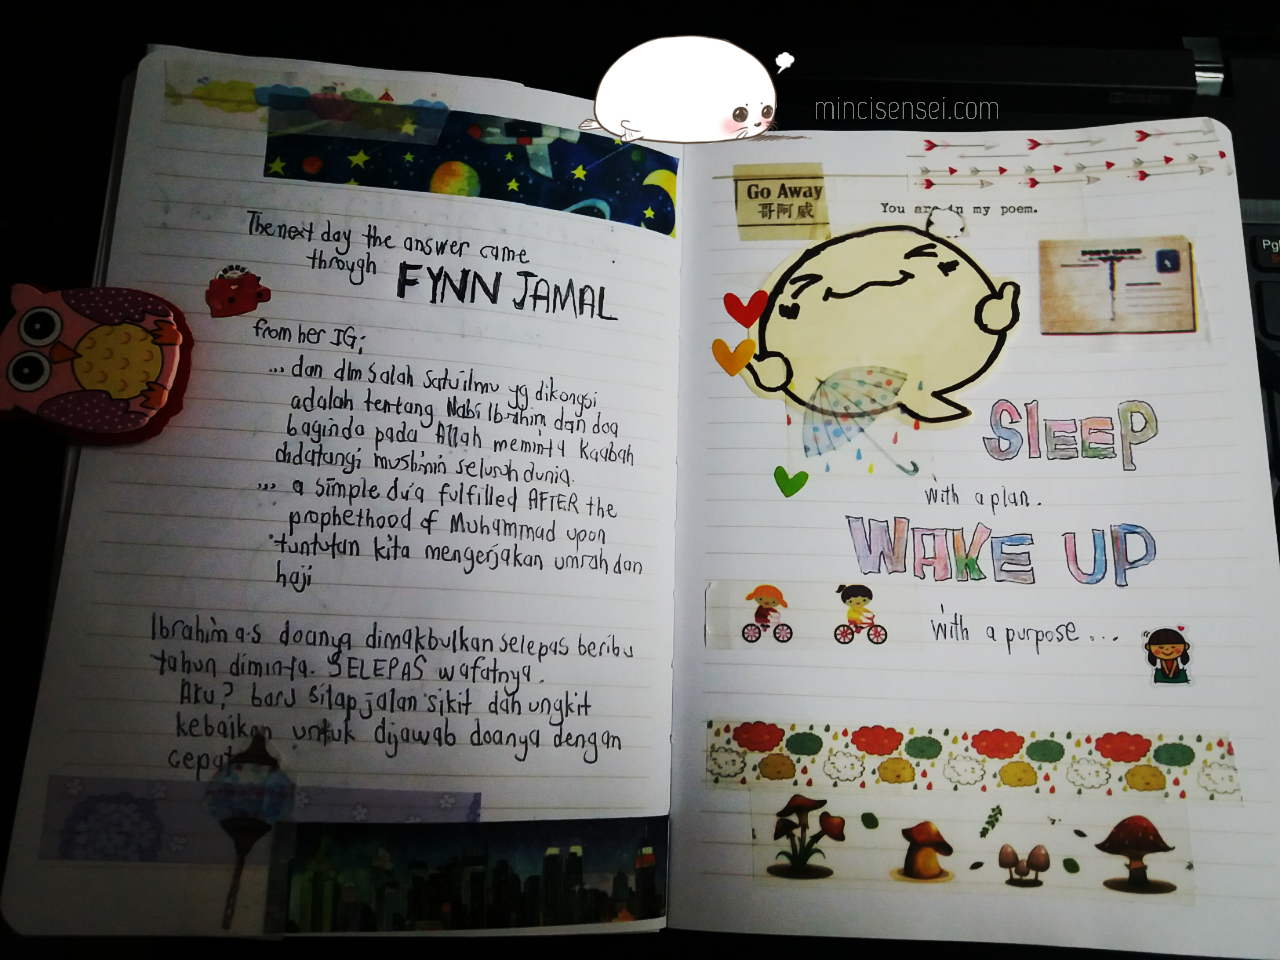 mincisensei.com
The next day the answer came
through FYNN JAMAL
from her IG;
... dan dlm salah satu ilmu yg dikongsi
adalah tentang Nabi Ibrahim dan doa
baginda pada Allah meminta Kaabah
didatangi muslimin seluruh dunia.
... a simple du'a fulfilled AFTER the
prophethood of Muhammad upon
tuntutan kita mengerjakan umrah dan
haji
Ibrahim a.s doanya dimakbulkan selepas beribu
tahun diminta. SELEPAS wafatnya.
Aku? baru silap jalan sikit dah ungkit
kebaikan untuk dijawab doanya dengan
cepat
Go Away
哥阿威
You are in my poem.
POST CARD
SLEEP
with a plan.
WAKE UP
with a purpose...